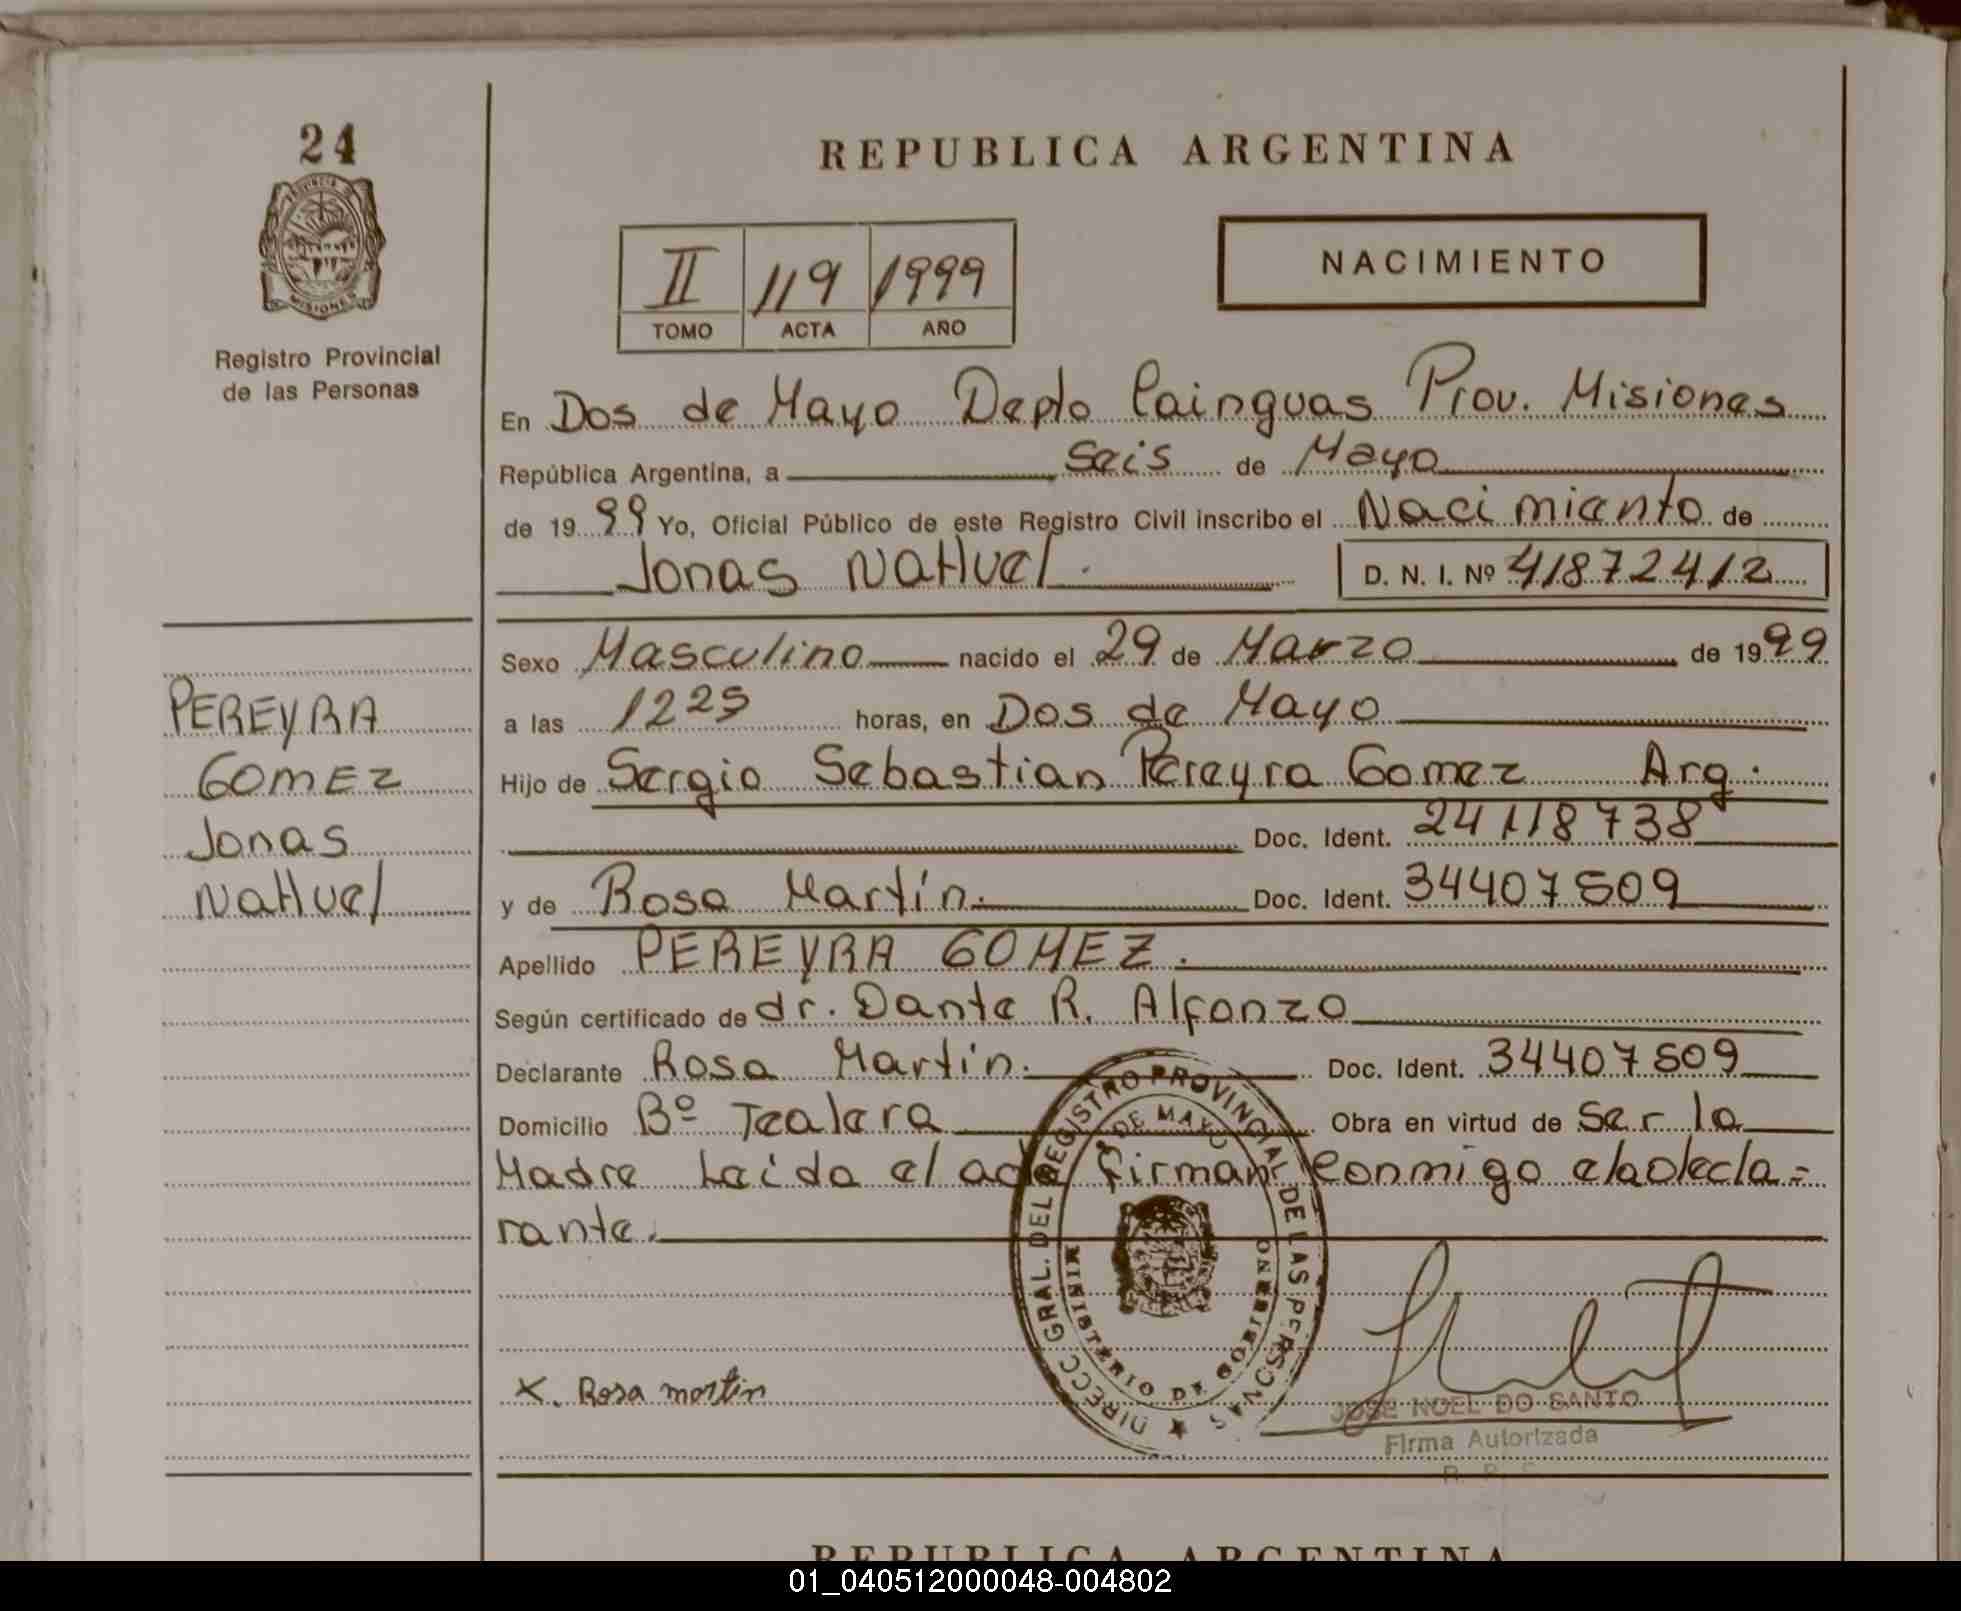 24
PROVINCIA DE
MISIONES
Registro Provincial
de las Personas
REPUBLICA ARGENTINA
II 119 1999
TOMO ACTA AÑO
NACIMIENTO
En Dos de Mayo Depto Cainguas Prov. Misiones
República Argentina, a Seis de Mayo
de 1999 Yo, Oficial Público de este Registro Civil inscribo el Nacimiento de
Jonas Nahuel. D. N. I. Nº 41872412
Sexo Masculino nacido el 29 de Marzo de 1999
a las 1225 horas, en Dos de Mayo
Hijo de Sergio Sebastian Pereyra Gomez Arg.
Doc. Ident. 24118738
y de Rosa Martín. Doc. Ident. 34407509
Apellido PEREYRA GOMEZ.
Según certificado de dr. Dante R. Alfonzo
Declarante Rosa Martín. Doc. Ident. 34407509
Domicilio Bº Tealera Obra en virtud de Ser la
Madre Leida el acta firman Conmigo el declarante.
PEREYRA
GOMEZ
Jonas
Nahuel
DIRECC GRAL. DEL REGISTRO PROVINCIAL DE LAS PERSONAS
DE MAYO
MINISTERIO DE GOBIERNO
X. Rosa martin
JOSE NOEL DO SANTO
Firma Autorizada
REPUBLICA ARGENTINA
01_040512000048-004802